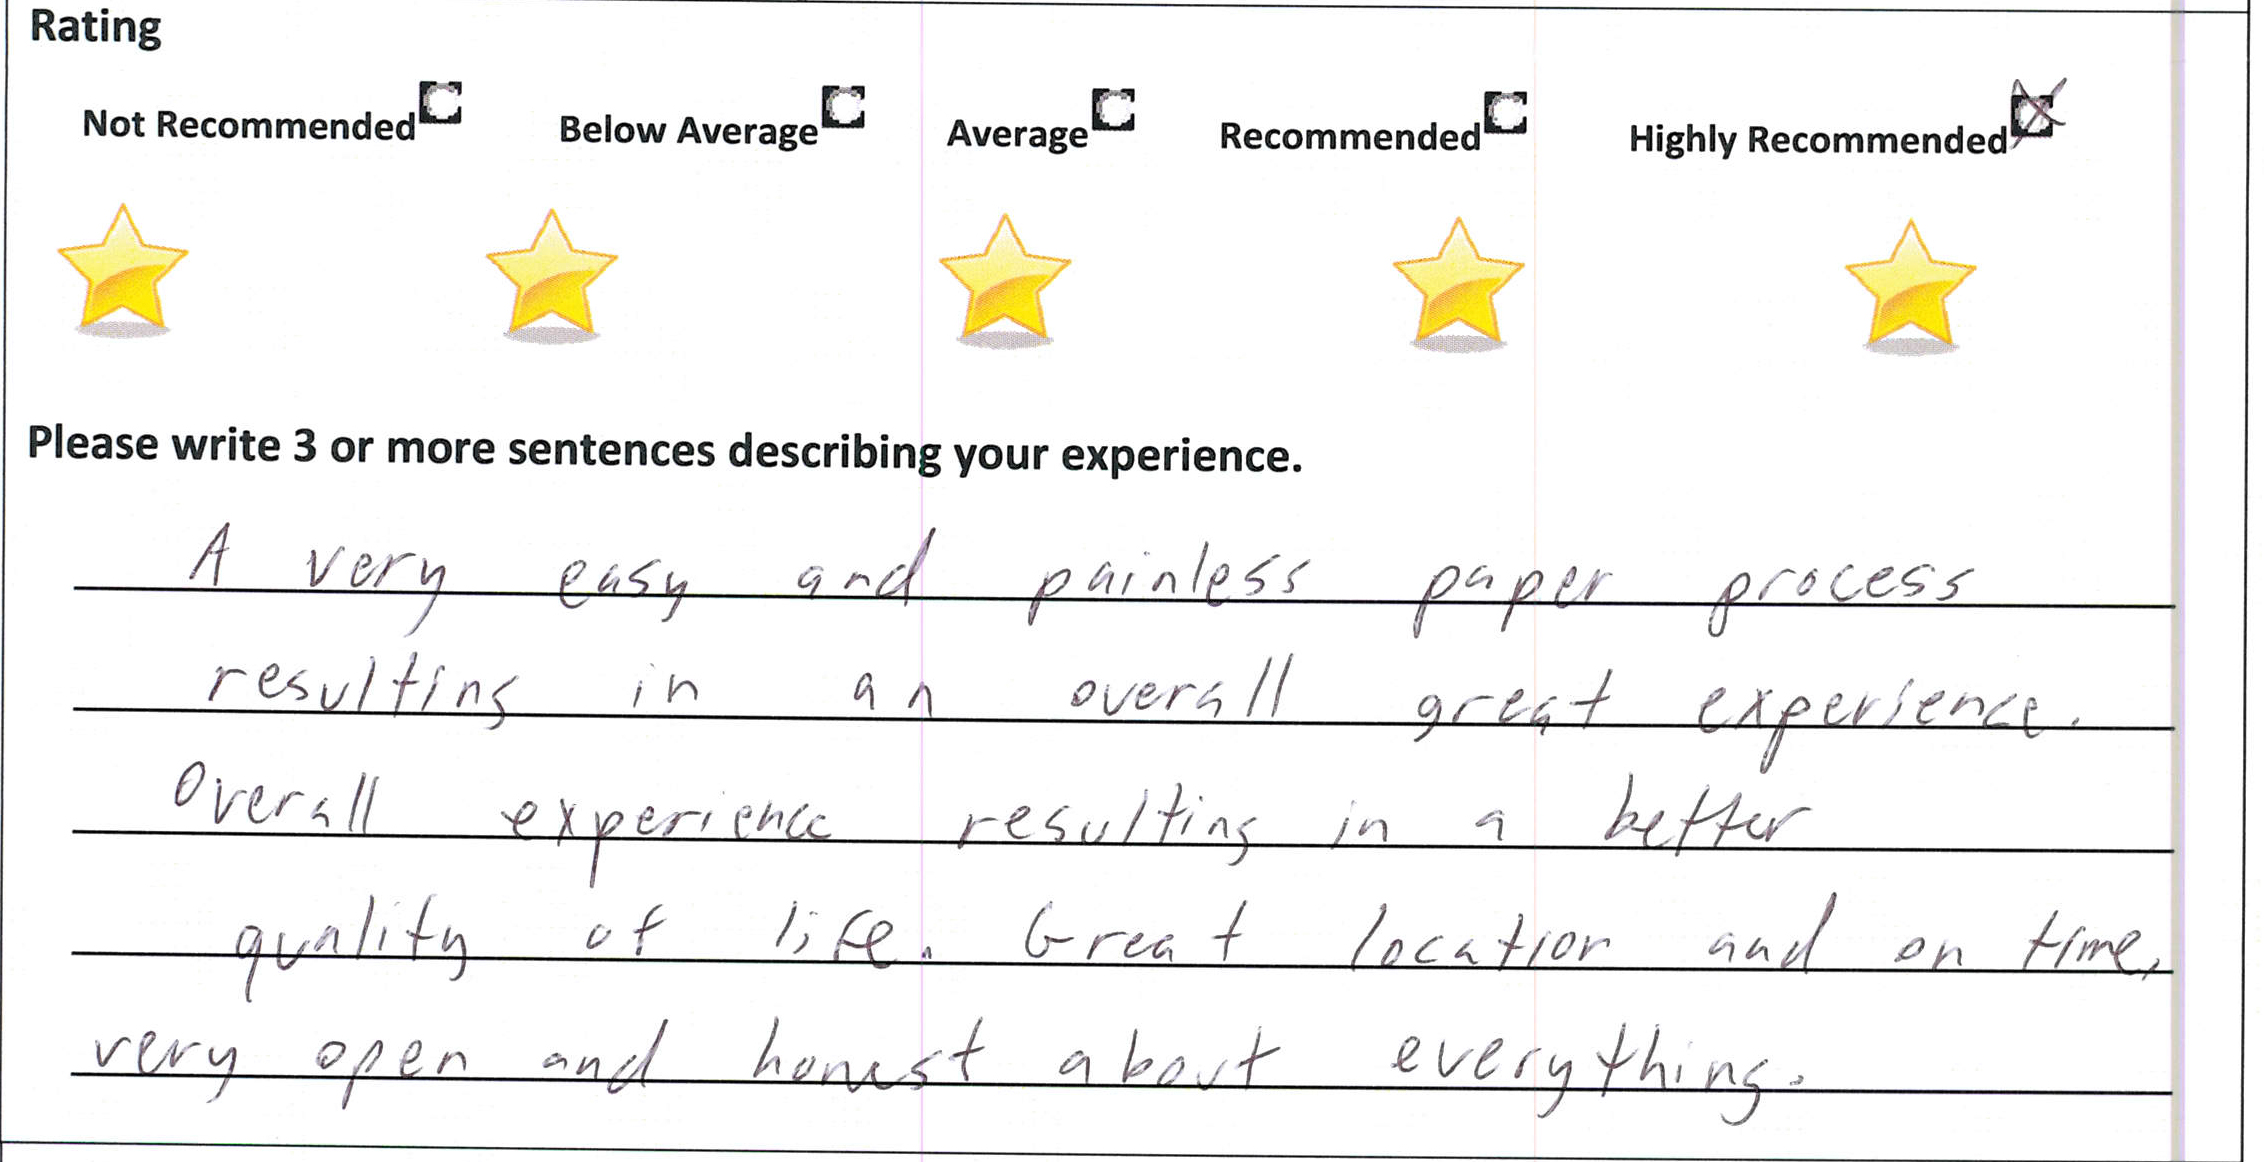 Rating
Not Recommended Below Average Average Recommended Highly Recommended
Please write 3 or more sentences describing your experience.
A very easy and painless paper process
resulting in an overall great experience.
Overall experience resulting in a better
quality of life. Great location and on time,
very open and honest about everything.